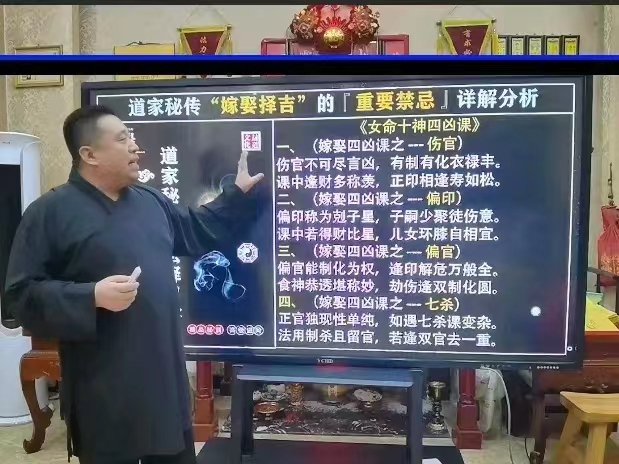 道家秘传“嫁娶择吉”的『重要禁忌』详解分析
道家秘
《女命十神四凶课》
一、（嫁娶四凶课之---伤官）
伤官不可尽言凶，有制有化衣禄丰。
课中逢财多称羡，正印相逢寿如松。
二、（嫁娶四凶课之---偏印）
偏印称为剋子星，子嗣少聚徒伤意。
课中若得财比星，儿女环膝自相宜。
三、（嫁娶四凶课之---偏官）
偏官能制化为权，逢印解危万般全。
食神恭透堪称妙，劫伤逢双制化圆。
四、（嫁娶四凶课之---七杀）
正官独现性单纯，如遇七杀课变杂。
法用制杀且留官，若逢双官去一重。